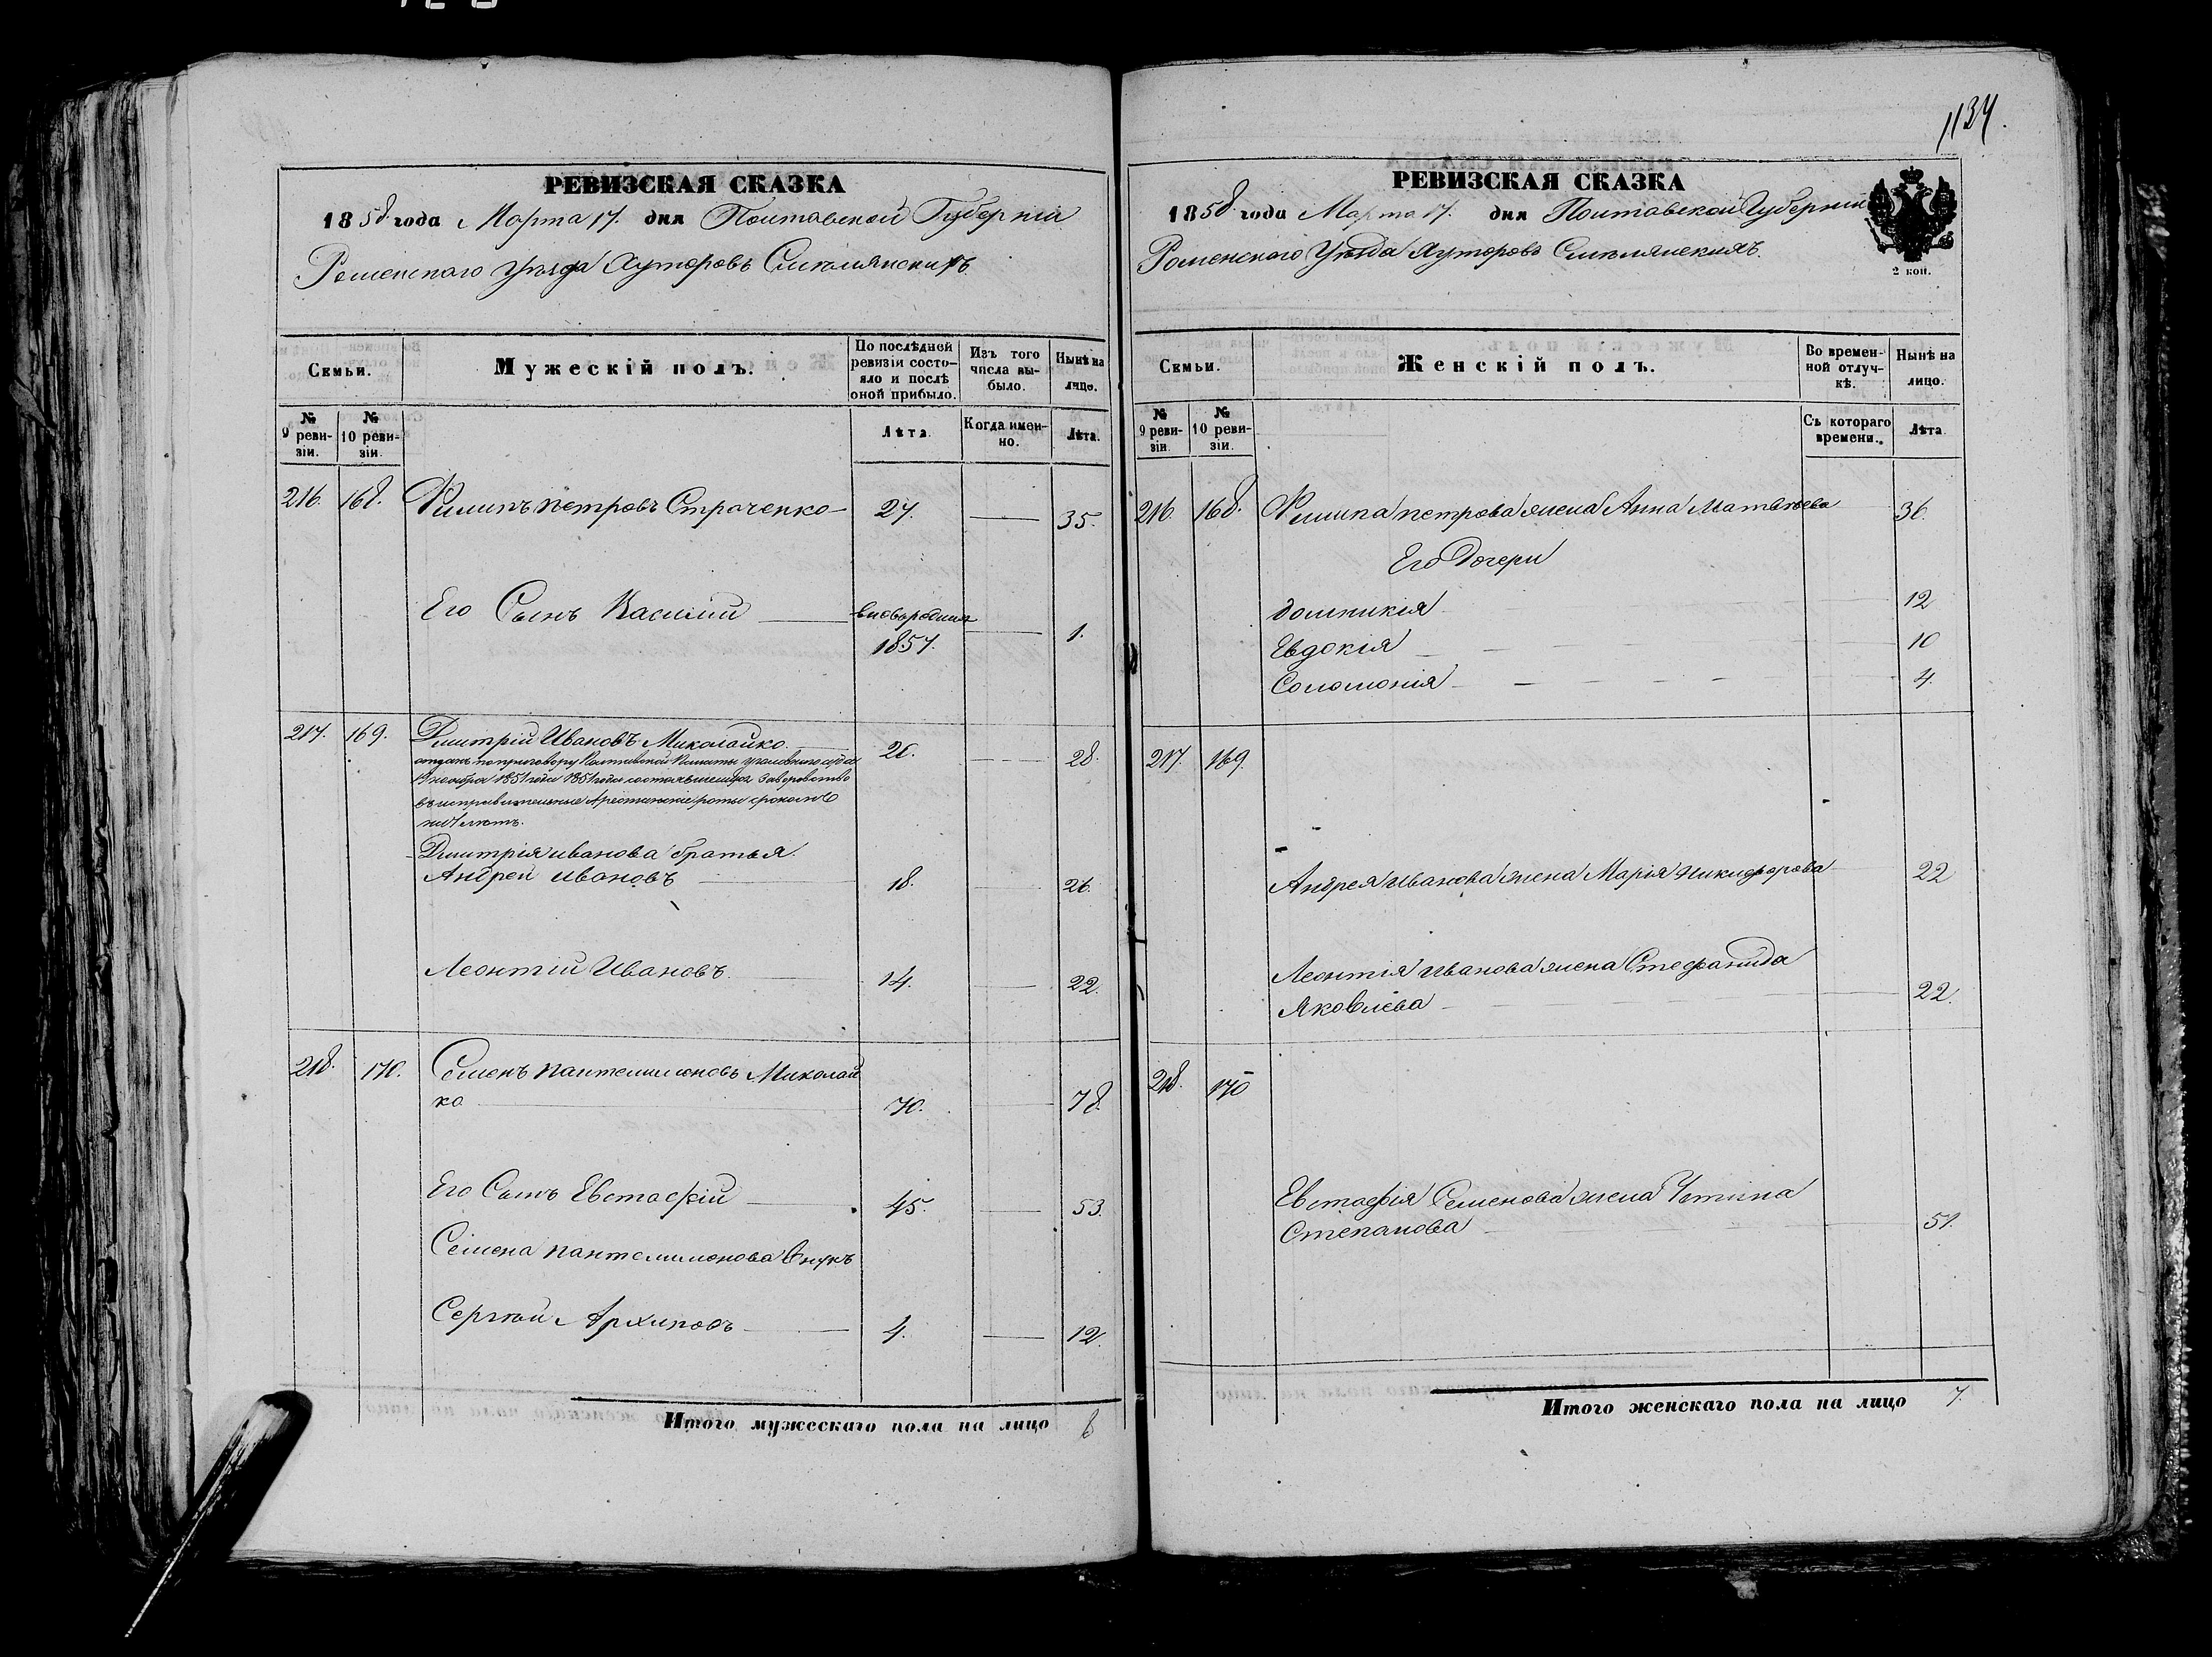 РЕВИЗСКАЯ СКАЗКА
1858 года Марта 17. дня Полтавской Губерніи
Роменскаго уѣзда Хуторовъ Смѣлянскихъ
Семьи.
Мужескій полъ.
По послѣдней ревизіи состояло и послѣ оной прибыло.
Изъ того числа выбыло.
Нынѣ на лицо.
№ 9 ревизіи.
№ 10 ревизіи.
Лѣта
Когда именно.
Лѣта.
216. 168. Филипъ петровъ Страченко 27. 35.
Его Сынъ Василий вновьрожден 1.
1857.
217. 169. Дмитрій Ивановъ Миколайко. 20. 28.
отданъ по приговору Полтавской Палаты уголовного суда
19 ноября 1851 года 1851 года состоявшемуся за воровство
въ исправительные Арестанские роты срокомъ
лѣтъ.
Дмитрія иванова братья.
Андрей ивановъ 18. 26.
Леонтій Ивановъ. 14. 22.
218. 170. Семенъ пантелимоновъ Миколай
ко 70. 78.
Его Сынъ Евстафій 45. 53.
Семена пантелимонова внукъ
Сергѣй Архиповъ 4. 12.
Итого мужескаго пола на лицо 8
1134.
РЕВИЗСКАЯ СКАЗКА
1858 года Марта 17. дня Полтавской Губерніи
Роменского Уѣзда Хуторовъ Смѣлянскихъ.
2 коп.
Семьи.
Женскій полъ.
Во временной отлучкѣ.
Нынѣ на лицо.
№ 9 ревизіи.
№ 10 ревизіи.
Съ котораго времени.
Лѣта
216. 168. Филипа петрова жена Анна Матвѣева 36.
Его Дочери
домникія 12
Евдокія 10
Соломонія 4.
217. 169.
Андрея Иванова жена Марія Никифорова 22
Леонтія иванова жена Стефанида
Яковлева 22.
218. 170
Евстафія Семенова жена
Степанова 51.
Итого женскаго пола на лицо 7.